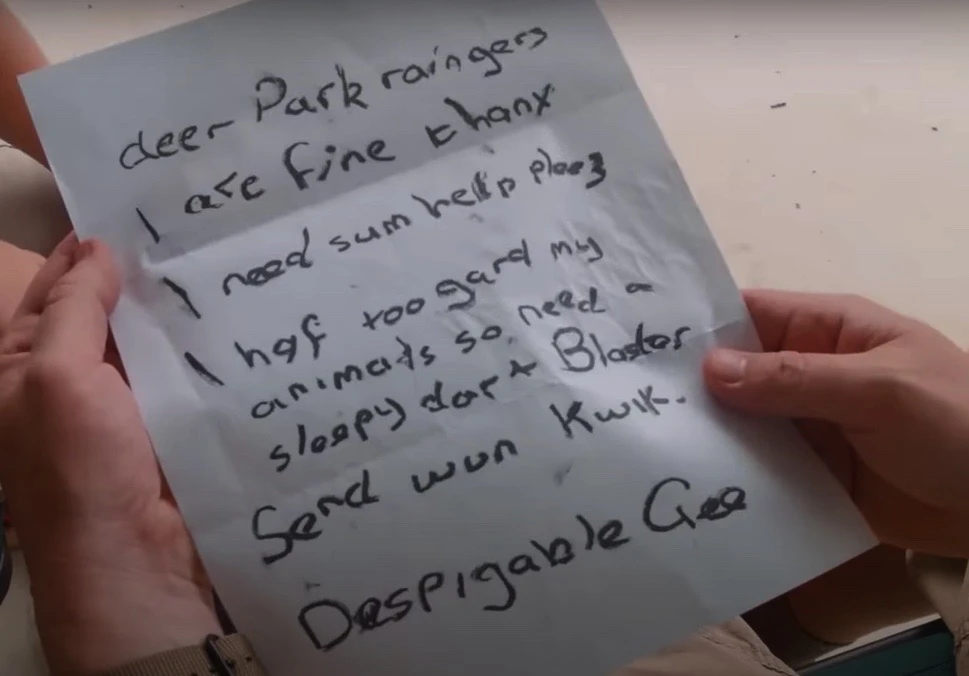 deer Park raingers
I are fine thanx
I need sum help pleez
I haf too gard my
animals so need a
sleepy dart Blaster
Send wun Kwik.
Despigable Gee